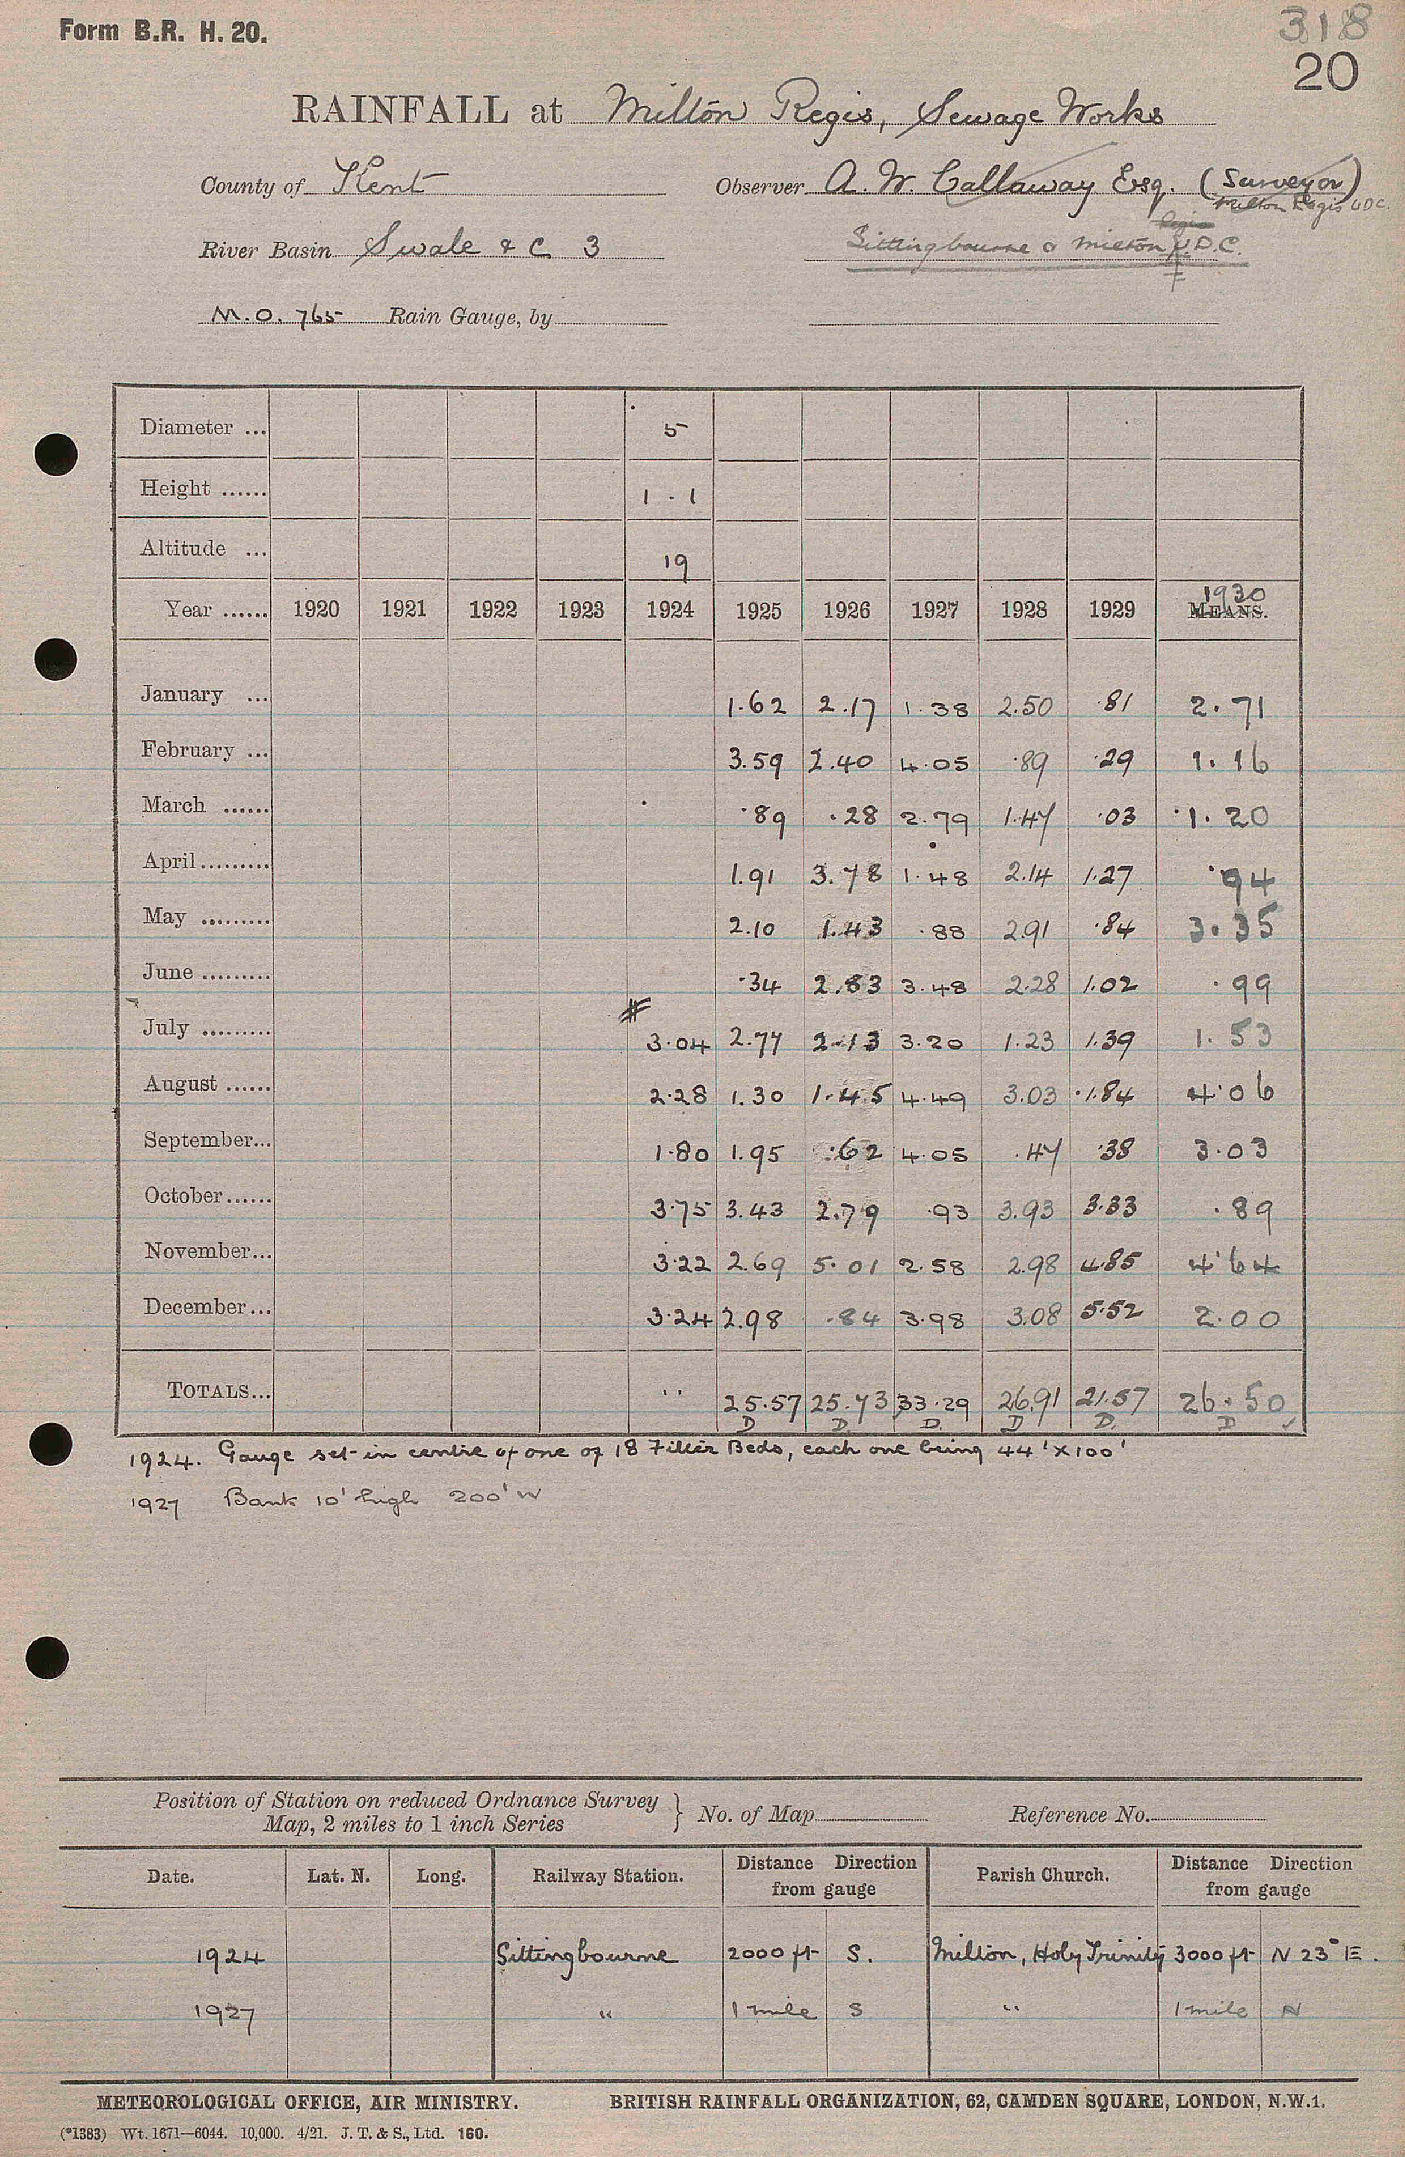 Form B.R. H. 20.
318
20
RAINFALL at Milton Regis, Sewage Works
County of Kent Observer A. W. Callaway Esq. (Surveyor)
Milton Regis UDC.
Regis
River Basin Swale & C 3 Sittingbourne & Milton U.D.C.
M.O. 765 Rain Gauge, by
Diameter ... 5
Height ...... 1 . 1
Altitude ... 19
1930
Year ...... 1920 1921 1922 1923 1924 1925 1926 1927 1928 1929 MEANS.
January ... 1.62 2.17 1.38 2.50 .81 2.71
February ... 3.59 2.40 4.05 .89 .29 1.16
March ...... .89 .28 2.79 1.47 .03 1.20
April ......... 1.91 3.78 1.48 2.14 1.27 .94
May ......... 2.10 1.43 .88 2.91 .84 3.35
June ......... .34 2.83 3.48 2.28 1.02 .99
July ......... 3.04 2.77 2.13 3.20 1.23 1.39 1.53
August ...... 2.28 1.30 1.45 4.49 3.03 1.84 4.06
September... 1.80 1.95 .62 4.05 .47 .38 3.03
October...... 3.75 3.43 2.79 .93 3.93 3.33 .89
November... 3.22 2.69 5.01 2.58 2.98 4.85 4.64
December... 3.24 2.98 .84 3.98 3.08 5.52 2.00
TOTALS... .. 25.57 25.73 33.29 26.91 21.57 26.50
D D D D D. D
1924. Gauge set in centre of one of 18 Filter Beds, each one being 44'x100'
1927 Bank 10' high 200' W
Position of Station on reduced Ordnance Survey
Map, 2 miles to 1 inch Series } No. of Map Reference No.
Date. Lat. N. Long. Railway Station. Distance Direction from gauge Parish Church. Distance Direction from gauge
1924 Sittingbourne 2000 ft S. Milton, Holy Trinity 3000 ft N 23° E.
1927 " 1 mile S " 1 mile N
METEOROLOGICAL OFFICE, AIR MINISTRY. BRITISH RAINFALL ORGANIZATION, 62, CAMDEN SQUARE, LONDON, N.W.1.
(*1383) Wt. 1671—6044. 10,000. 4/21. J. T. & S., Ltd. 160.